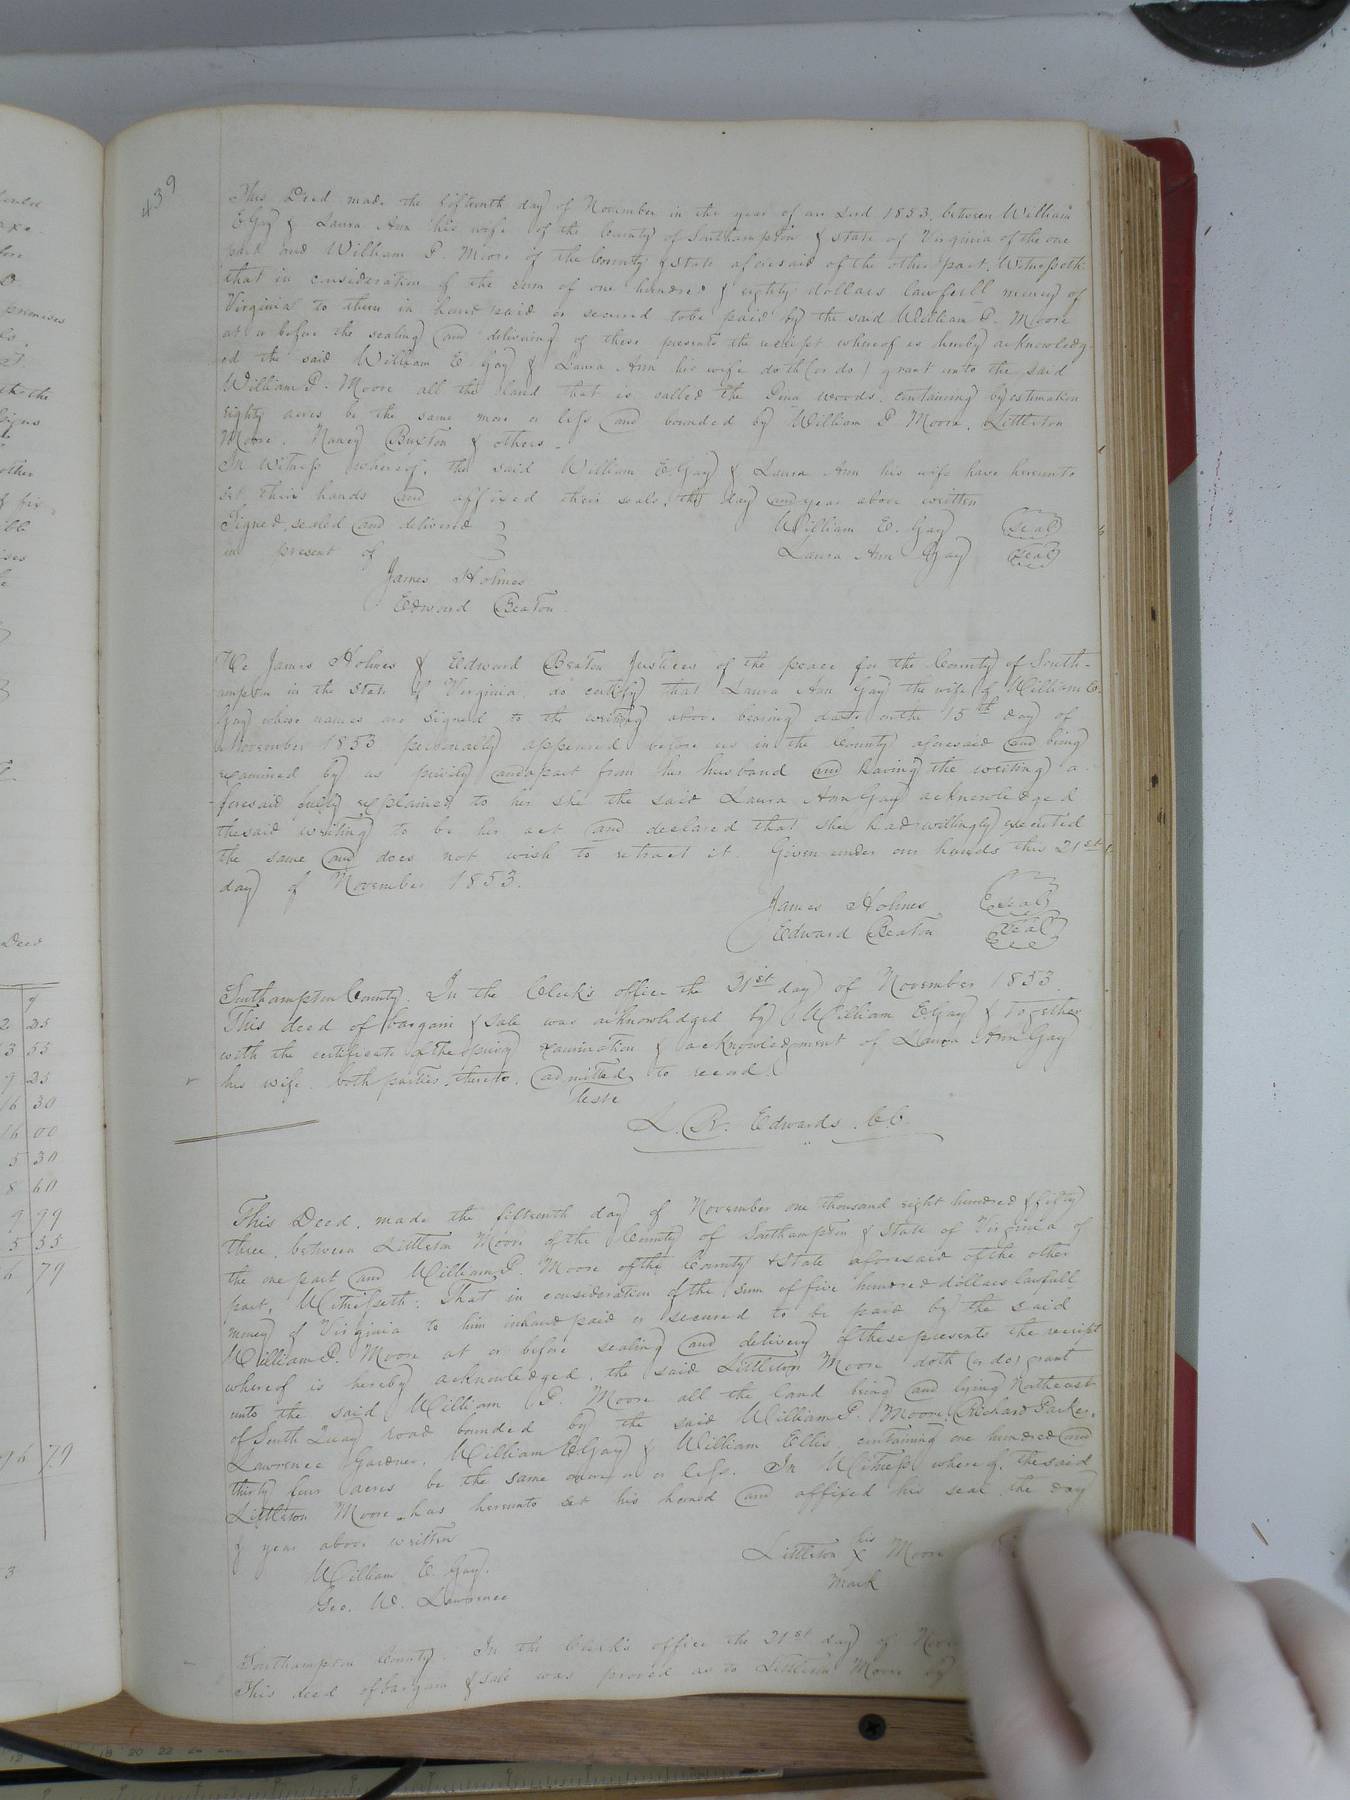 439
This Deed made the fifteenth day of November in the year of our Lord 1853. between William
E Gay & Laura Ann his wife of the County of Southampton & state of Virginia of the one
part and William P. Moore of the County & state aforesaid of the other part. Witnesseth
that in consideration of the sum of one hundred & eighty dollars lawfull money of
Virginia to them in hand paid or secured to be paid by the said William P. Moore
at or before the sealing and delivering of these presents the receipt whereof is hereby acknowledg-
ed the said William E Gay & Laura Ann his wife doth (or do) grant unto the said
William P. Moore all the land that is called the woods. containing by estimation
eighty acres be the same more or less and bounded by William P Moore, Littleton
Moore, Nancy Buxton & others.
In Witness whereof, the said William E. Gay & Laura Ann his wife have hereunto
set their hands and affixed their seals, the day and year above written
Signed, sealed and delivered William E. Gay Seal
in present of Laura Ann Gay Seal
James Holmes
Edward Beaton
We James Holmes & Edward Beaton Justices of the peace for the County of South-
ampton in the State of Virginia do certify that Laura Ann Gay the wife of William E.
Gay whose names are signed to the writing above bearing date on the 15th day of
November 1853 personally appeared before us in the County aforesaid and being
examined by us privily and apart from her husband and having the writing a-
foresaid fully explained to her she the said Laura Ann Gay acknowledged
the said writing to be her act and declared that she had willingly executed
the same and does not wish to retract it. Given under our hands this 21st
day of November 1853.
James Holmes Seal
Edward Beaton Seal
Southampton County. In the Clerk's office the 21st day of November 1853
This deed of bargain & sale was acknowledged by William E Gay & together
with the certificate of the privy examination & acknowledgment of Laura Ann Gay
his wife. both parties thereto. admitted to record.
Teste
L. R. Edwards. C.C.
This Deed, made the fifteenth day of November one thousand eight hundred & fifty
three, between Littleton Moore of the County of Southampton & State of Virginia of
the one part and William P. Moore of the County & State aforesaid of the other
part, Witnesseth: That in consideration of the sum of five hundred dollars lawfull
money of Virginia to him in hand paid or secured to be paid by the said
William P. Moore at or before sealing and delivery of these presents the receipt
whereof is hereby acknowledged, the said Littleton Moore doth (or do) grant
unto the said William P. Moore all the land being and lying Northeast
of South Quay road bounded by the said William P. Moore, Richard Parker,
Lawrence Gardner, William E Gay & William Ellis containing one hundred and
thirty four acres be the same more or less. In Witness whereof, the said
Littleton Moore has hereunto set his hand and affixed his seal the day
& year above written
William E. Gay. Littleton his X Moore
Geo. W. Lawrence mark
Southampton County. In the Clerk's office the 21st day of
This deed of bargain & sale was proved as to Littleton Moore by